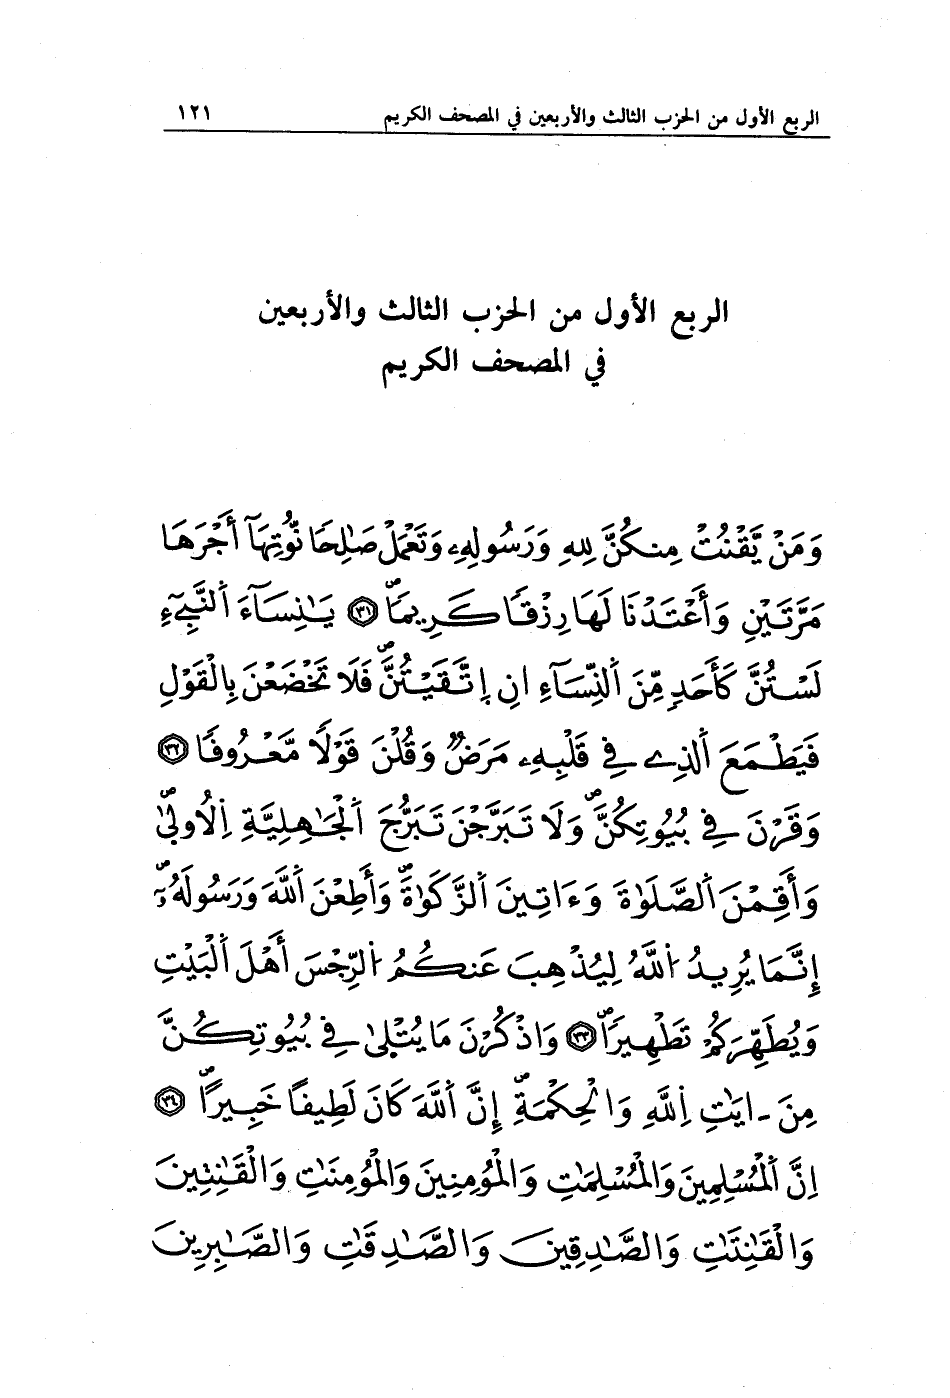 الربع الأول من الحزب الثالث والأربعين في المصحف الكريم ١٢١
الربع الأول من الحزب الثالث والأربعين
في المصحف الكريم
وَمَنْ يَّقْنُتْ مِنكُنَّ لِلهِ وَرَسُولِهِۦ وَتَعْمَلْ صَٰلِحًا نُّوتِهَآ أَجْرَهَا
مَرَّتَيْنِ وَأَعْتَدْنَا لَهَا رِزْقًا كَرِيمًا ۝٣١ يَٰنِسَآءَ اَ۬لنَّبِيٓءِ
لَسْتُنَّ كَأَحَدٍ مِّنَ اَ۬لنِّسَآءِ انِ اِ۪تَّقَيْتُنَّۖ فَلَا تَخْضَعْنَ بِالْقَوْلِ
فَيَطْمَعَ اَ۬لذِے فِے قَلْبِهِۦ مَرَضٌ وَقُلْنَ قَوْلًا مَّعْرُوفًا ۝٣٢
وَقَرْنَ فِے بُيُوتِكُنَّۖ وَلَا تَبَرَّجْنَ تَبَرُّجَ اَ۬لْجَٰهِلِيَّةِ اِ۬لُاولىٰۖ
وَأَقِمْنَ اَ۬لصَّلَوٰةَ وَءَاتِينَ اَ۬لزَّكَوٰةَۖ وَأَطِعْنَ اَ۬للَّهَ وَرَسُولَهُۥٓۖ
إِنَّمَا يُرِيدُ اُ۬للَّهُ لِيُذْهِبَ عَنكُمُ اُ۬لرِّجْسَ أَهْلَ اَ۬لْبَيْتِ
وَيُطَهِّرَكُمْ تَطْهِيرًاۖ ۝٣٣ وَاذْكُرْنَ مَا يُتْلىٰ فِے بُيُوتِكُنَّ
مِنَ ـ ايَٰتِ اِ۬للَّهِ وَالْحِكْمَةِۖ إِنَّ اَ۬للَّهَ كَانَ لَطِيفًا خَبِيرًاۖ ۝٣٤
اِنَّ اَ۬لْمُسْلِمِينَ وَالْمُسْلِمَٰتِ وَالْمُومِنِينَ وَالْمُومِنَٰتِ وَالْقَٰنِتِينَ
وَالْقَٰنِتَٰتِ وَالصَّٰدِقِينَ وَالصَّٰدِقَٰتِ وَالصَّٰبِرِينَ